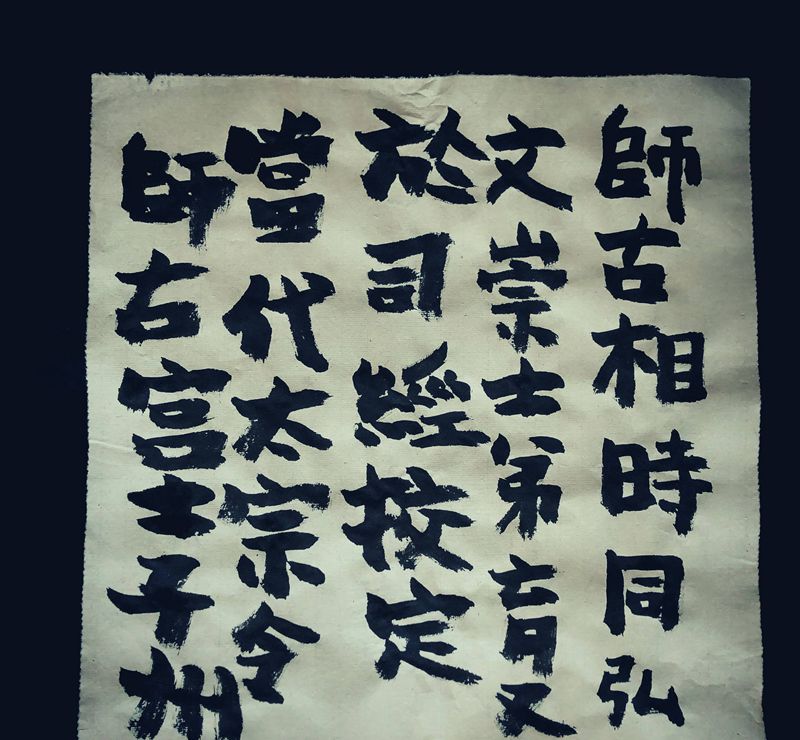 師古相時同弘
文崇士弟育又
於司經挍定
當代太宗令
師古宮士子州